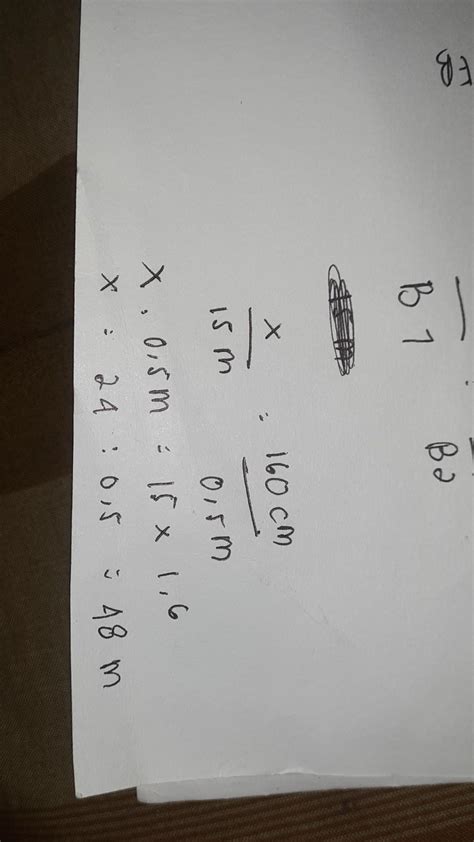 FB
B1 = B2
x = 160 cm
15 m 0,5 m
x . 0,5 m = 15 x 1,6
x = 24 : 0,5 = 48 m